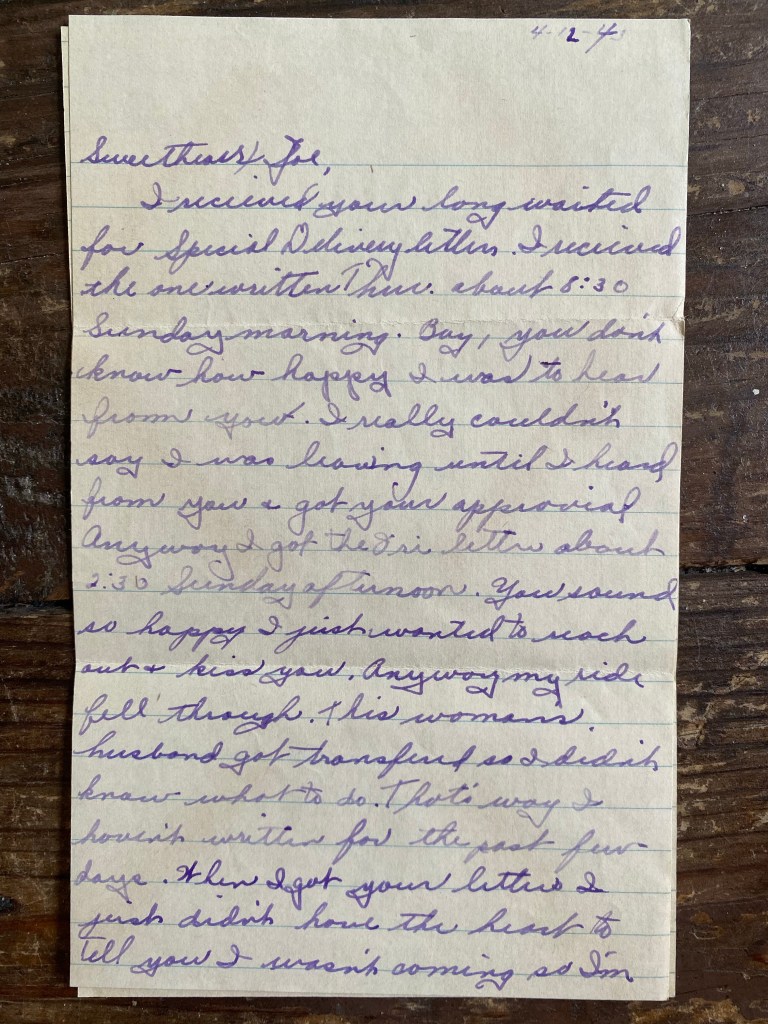 4-12-4
Sweetheart Joe,
I recieved your long waited
for Special Delivery letters. I recieved
the one written Thur. about 8:30
Sunday morning. Boy, you don't
know how happy I was to hear
from you. I really couldn't
say I was leaving until I heard
from you & got your approvial
Anyway I got the Fri letter about
2:30 Sunday afternoon. You sound
so happy I just wanted to reach
out & kiss you. Anyway my ride
fell through. This womans
husband got transferd so I didn't
know what to do. That's way I
haven't written for the past few
days. When I got your letters I
just didn't have the heart to
tell you I wasn't coming so I'm